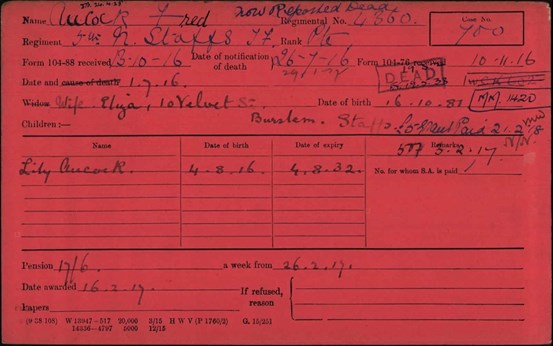 Name Aucock Fred now Reported Dead Regimental No. 4860. Case No.
Regiment N. Staffs T.F. Rank Pte 700
Form 104-88 received 13-10-16 Date of notification of death 26-7-16 Form 104-76 received 10-11-16
DEAD
Date and cause of death 1.7.16. N/N. 1420
Widow Wife Eliza, 10 Velvet St., Date of birth 16.10.81
Burslem. Staffs
Children:—
Name Date of birth Date of expiry Remarks 5.2.17.
Lily Aucock. 4-8.16. 4.8.32. No. for whom S.A. is paid
Pension 17/6. a week from 26.2.17.
Date awarded 16.2.17. If refused, reason
Papers
(9 28 108) W 13947—517 20,000 3/15 H W V (P 1760/2) G. 15/251
14636—4797 5000 12/15